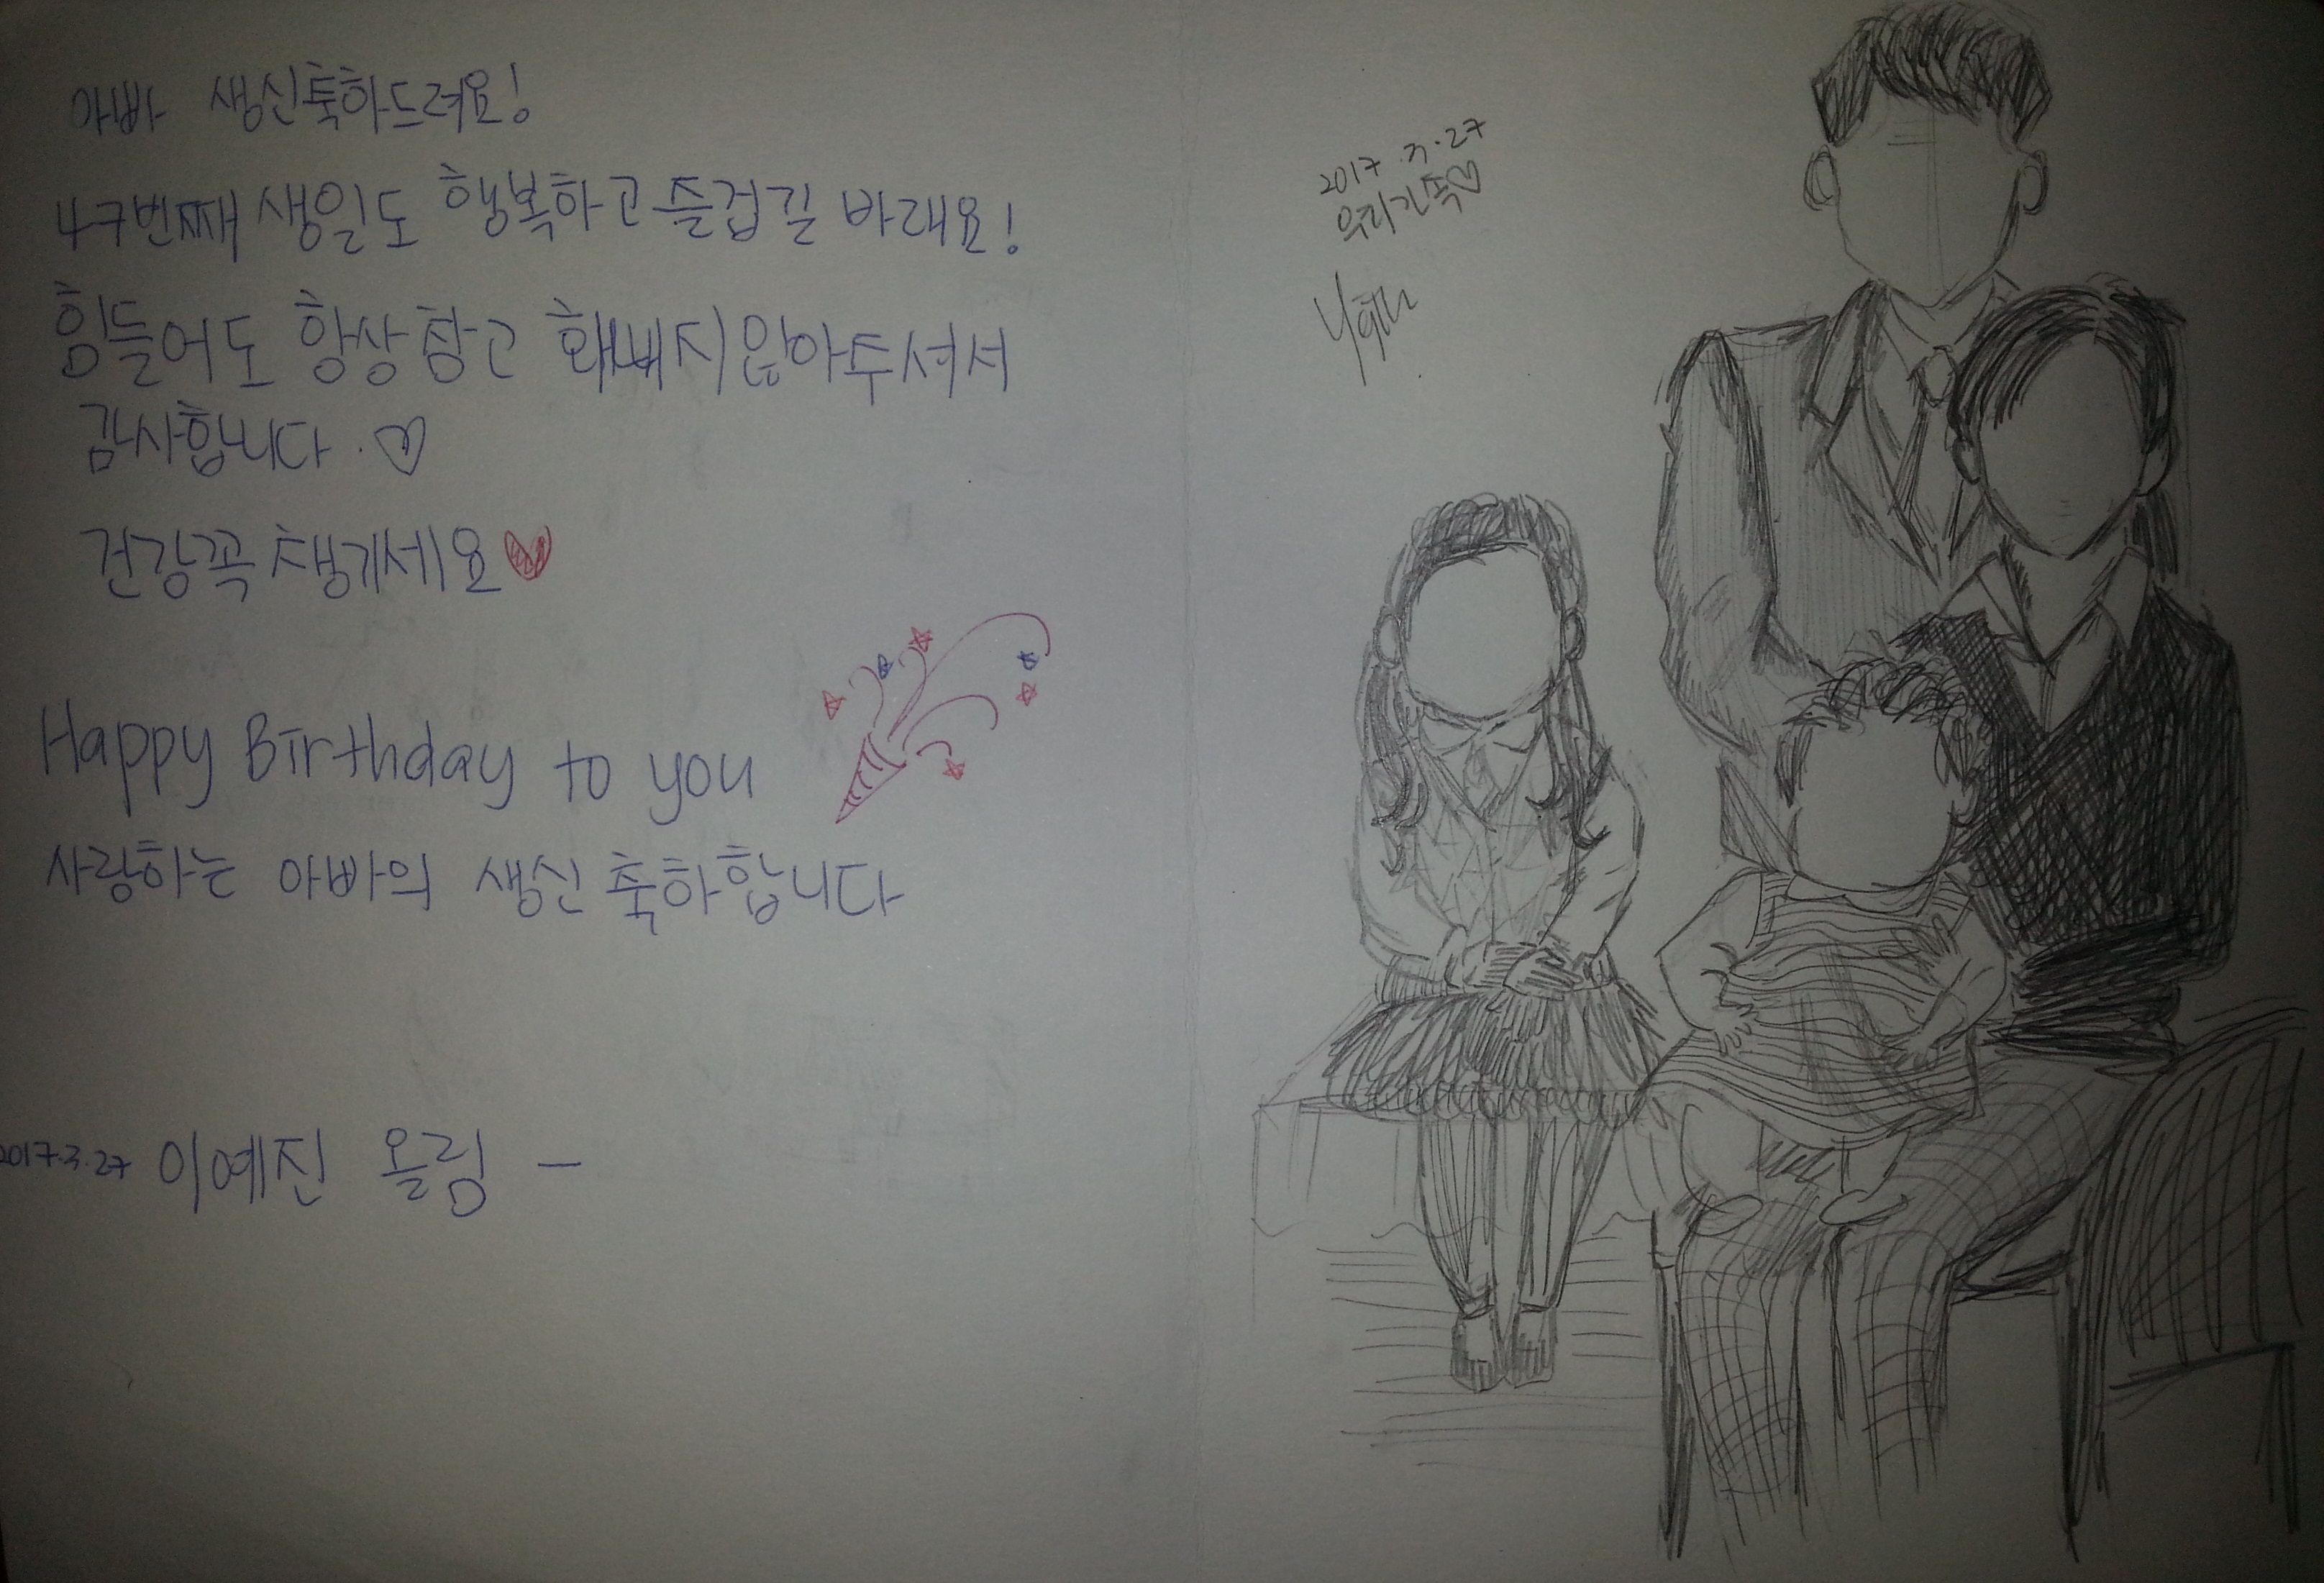 아빠 생신축하드려요!
47번째 생일도 행복하고 즐겁길 바래요!
힘들어도 항상 참고 화내지 않아주셔서
감사합니다. ♡
건강 꼭 챙기세요♥
Happy Birthday to you
사랑하는 아빠의 생신 축하합니다
2017.3.27 이예진 올림 -
2017.3.27
우리가족♡